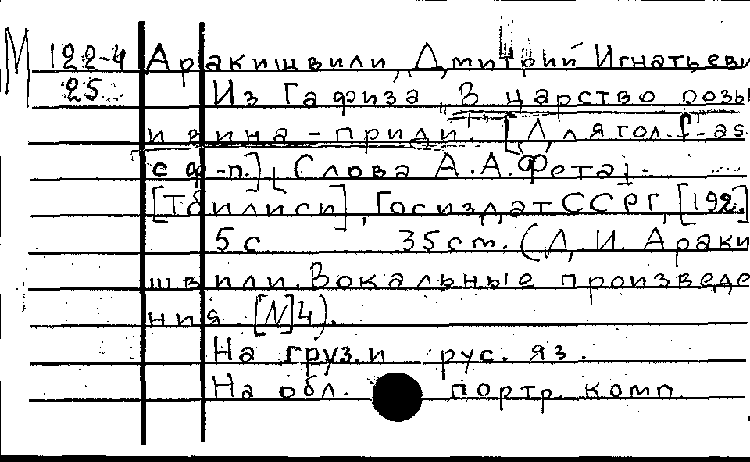 М 122-4 Аракишвили, Дмитрий Игнатьеви
25 Из Гафиза „В царство розы
и вина - приди". [Для гол. f-as
с ф-п.], Слова А.А.Фета.-
[Тбилиси], Госиздат ССРГ, [192.]
5с 35см. (Д. И. Араки
швили. Вокальные произведе
ния [N]4).
На груз. и рус. яз.
На обл. портр. комп.